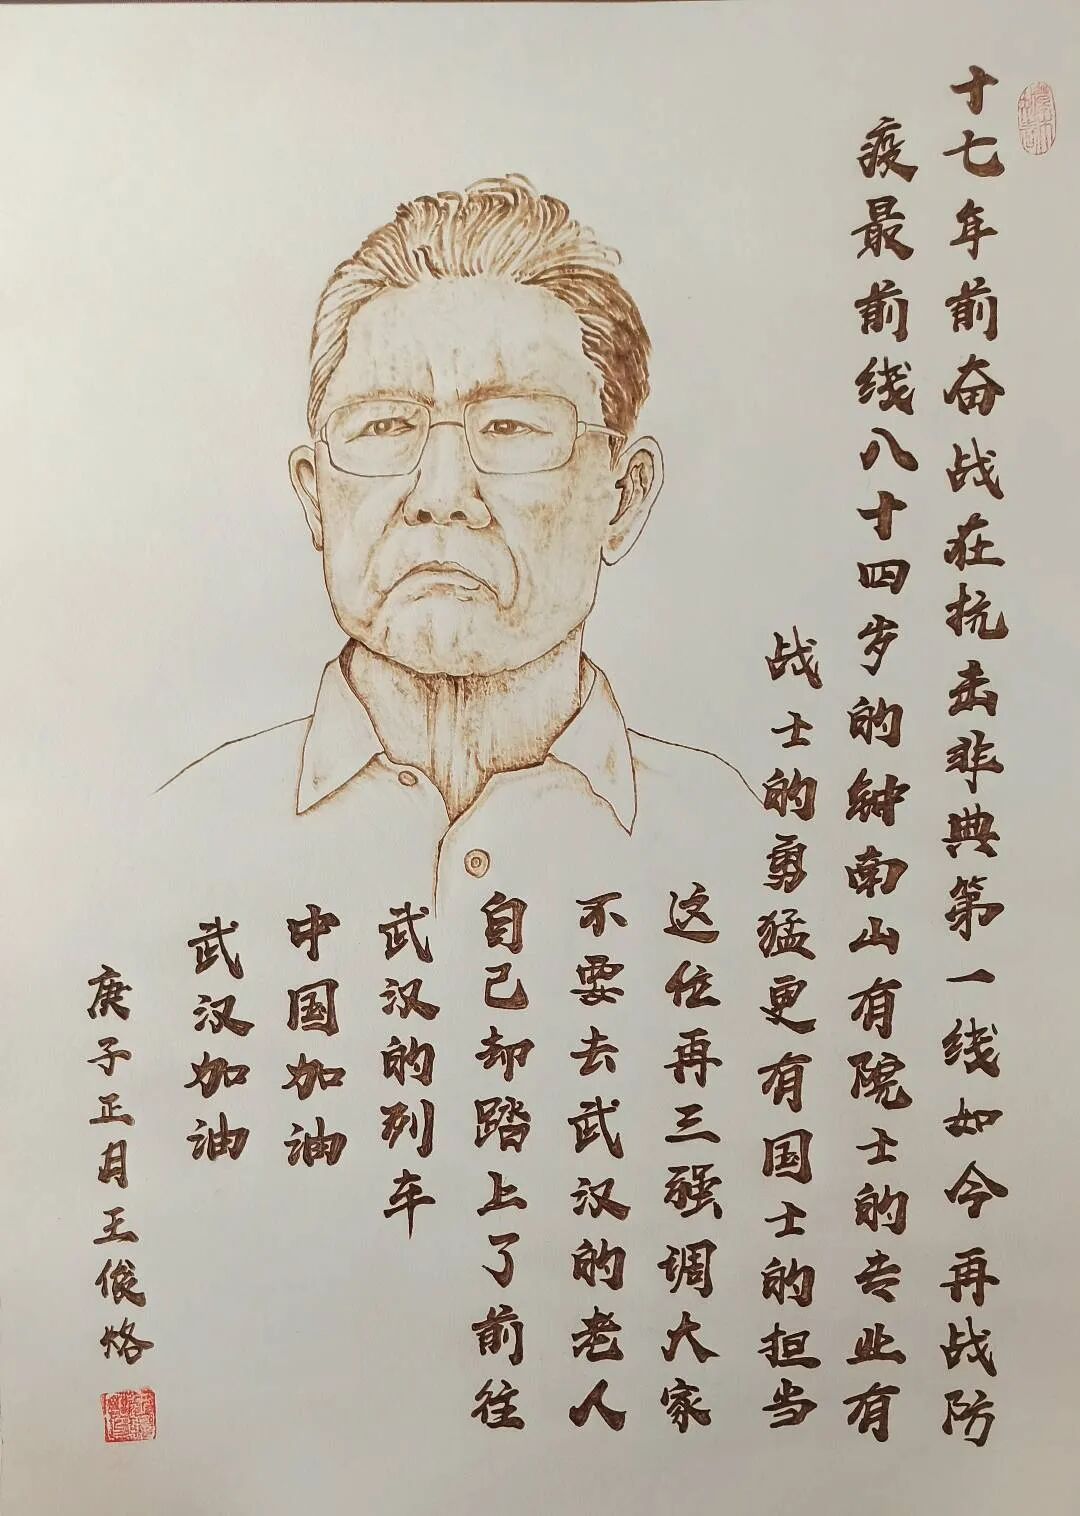 十七年前奋战在抗击非典第一线如今再战防
疫最前线八十四岁的钟南山有院士的专业有
战士的勇猛更有国士的担当
这位再三强调大家
不要去武汉的老人
自己却踏上了前往
武汉的列车
中国加油
武汉加油
庚子正月王俊烙